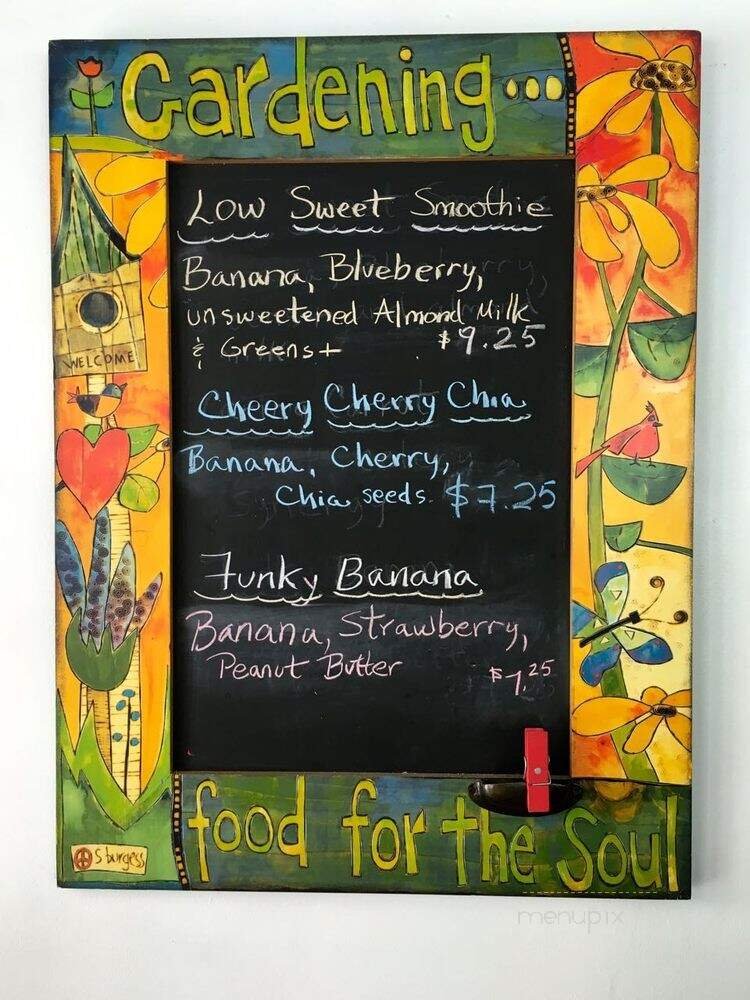 Gardening...
WELCOME
Low Sweet Smoothie
Banana, Blueberry,
unsweetened Almond Milk
& Greens+ $9.25
Cheery Cherry Chia
Banana, Cherry,
Chia seeds. $7.25
Funky Banana
Banana, Strawberry,
Peanut Butter $7.25
food for the Soul
S burgess
menupix